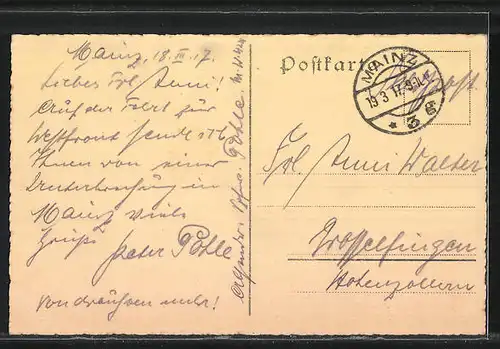 Mainz, 18. III. 17.
Liebes Frl. Anni!
Auf der Fahrt für
Westfront sende ich
Ihnen von einer
Unterbrechung in
Mainz viele
Grüße Peter Pohle
von draußen mehr!
Absender: Peter Pohle.
Postkarte
MAINZ
19.3.17.9-10V.
* 3 g
Feldpost.
Frl. Anni Walter
Grosselfingen
Hohenzollern